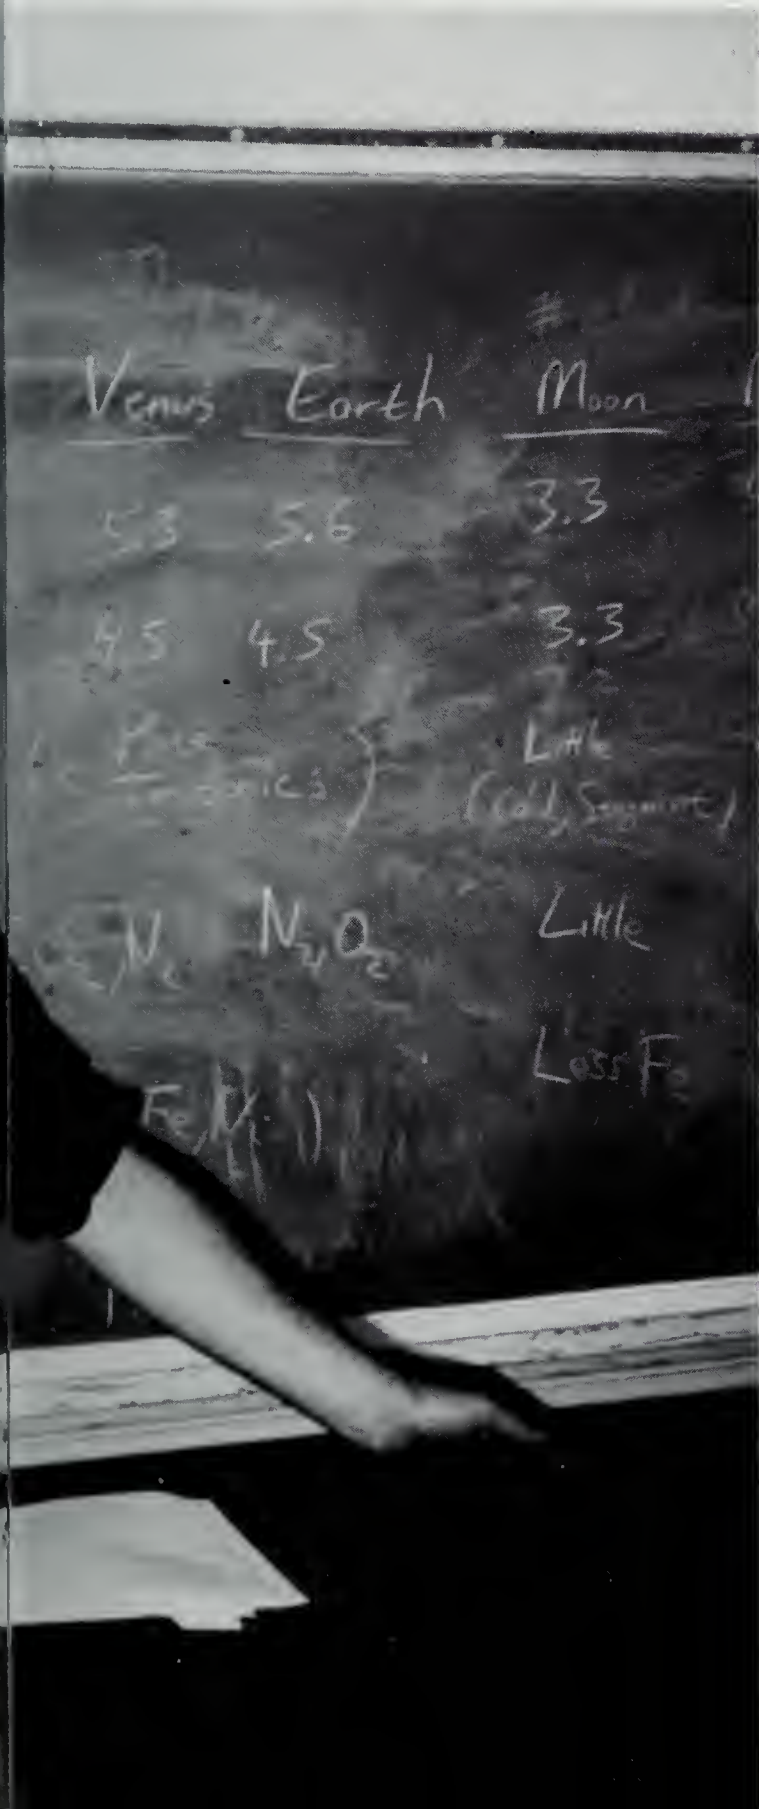 Venus Earth Moon
5.3 5.6 3.3
4.5 4.5 3.3
Little
N₂ N₂, O₂ Little
Fe, Ni) Less Fe